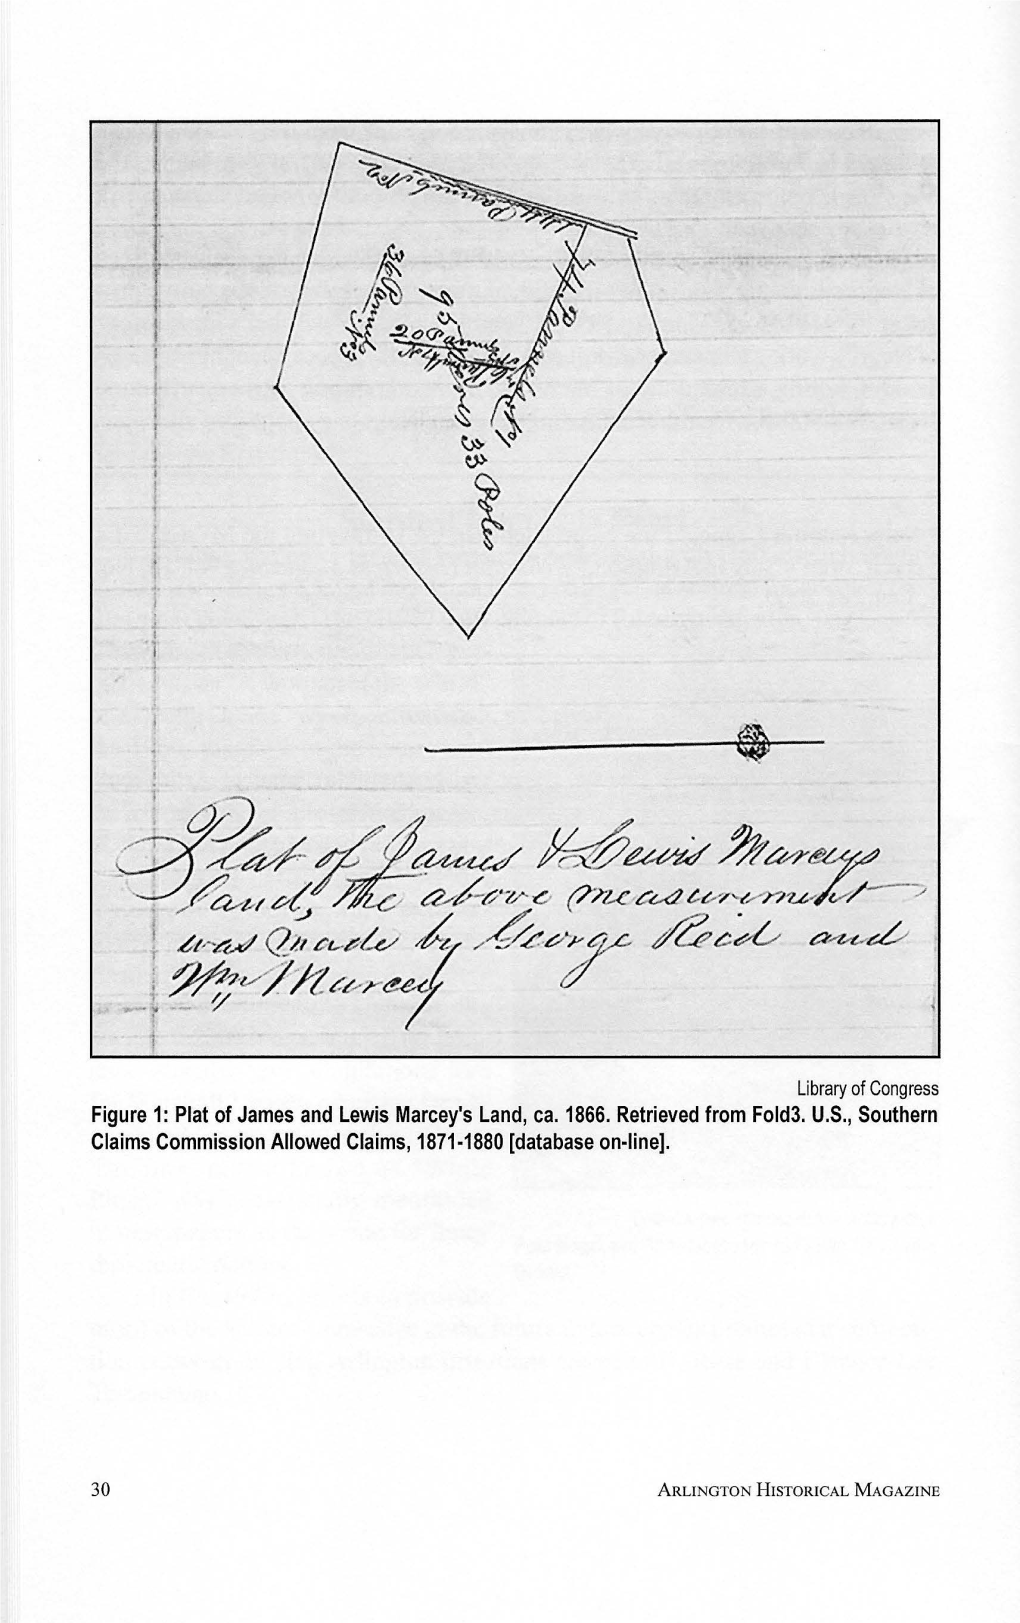 144 Pannels No 2
36 Pannels
No 3
74 Pannels No 1
20 Pannels
No 4
95 Acres 33 Poles
Plat of James & Lewis Marceys
land, the above measurement
was made by George Reid and
Wm Marcey
Library of Congress
Figure 1: Plat of James and Lewis Marcey's Land, ca. 1866. Retrieved from Fold3. U.S., Southern
Claims Commission Allowed Claims, 1871-1880 [database on-line].
30 ARLINGTON HISTORICAL MAGAZINE